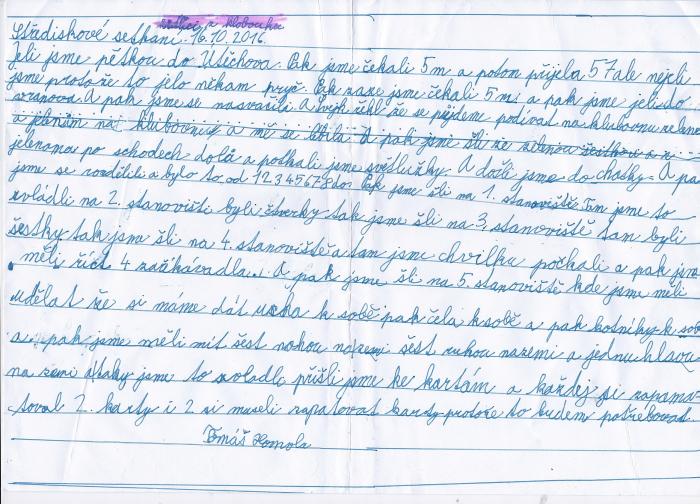 vedtjci z klobouku
Střediskové setkaní. 16.10.2016.
Jeli jsme pětkou do Útěchova. Pak jsme čekali 5m a potom přijela 57 ale nejeli
jsme protože to jelo někam pryč. Pak zase jsme čekali 5m a pak jsme jeli do
vranova. A pak jsme se nasvačili. A vejh řekl že se pějdem podívat na klubovnu zelene
a jelenim na klubovnu a mě se líbila. A pak jsme šli ze zelenou šestkou a z
jelenama po schodech dolů a potkali jsme světlušky. A došli jsme do chatky. A pa
jsme se rozdělili a bylo to od 12345678 do Pak jsme šli na 1. stanoviště. Tam jsme to
zvládli na 2. stanovišti byli čtverky tak jsme šli na 3. stanoviště tam byli
šestky tak jsm šli na 4. stanoviště a tam jsme chvilku počkali a pak jsm
měli říct 4 zaříkávadla. A pak jsme šli na 5. stanoviště kde jsme měli
udělat že si máme dát ucha k sobě pak čela k sobě a pak kotníky k sob
a pak jsme měli mít šest nohou nazemi šest ruhou nazemi a jednu hlavu
na zemi a taky jsme to zvladli přišli jsme ke kartám a každej si zapama-
toval 2. karty i 2 si museli zapatovat karty protože to budem potřebovat.
Tomáš Homola